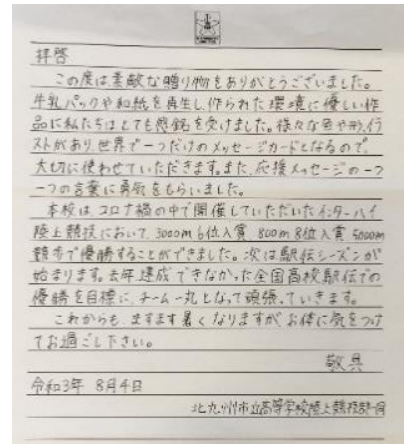 拝啓
この度は素敵な贈り物をありがとうございました。
牛乳パックや和紙を再生し、作られた環境に優しい作
品に私たちはとても感銘を受けました。様々な色や形、イラ
ストがあり、世界で一つだけのメッセージカードとなるので、
大切に使わせていただきます。また、応援メッセージの一つ
一つの言葉に勇気をもらいました。
本校は、コロナ禍の中で開催していただいたインターハイ
陸上競技において、3000m 6位入賞 800m 8位入賞 5000m
競歩で優勝することができました。次は駅伝シーズンが
始まります。去年達成できなかった全国高校駅伝での
優勝を目標に、チーム一丸となって頑張っていきます。
これからも、ますます暑くなりますが、お体に気をつけ
てお過ごし下さい。
敬具
令和3年 8月4日
北九州市立高等学校陸上競技部一同